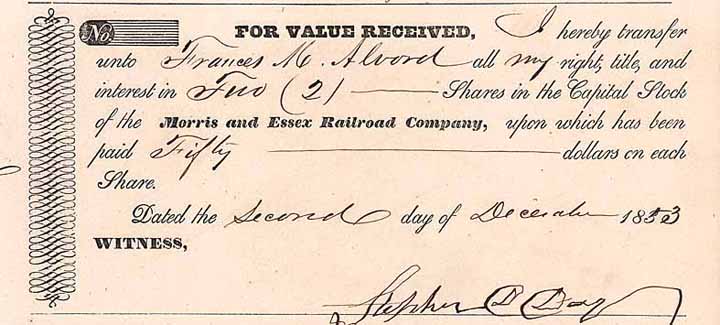 No.
FOR VALUE RECEIVED, I hereby transfer
unto Frances M. Alvord all my right, title, and
interest in Two (2) Shares in the Capital Stock
of the Morris and Essex Railroad Company, upon which has been
paid Fifty dollars on each
Share.
Dated the second day of December 1853
WITNESS,
Stephen D Day